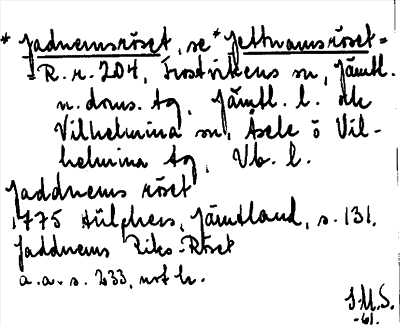 * Jadnemsröset, se * Jettnamsröset =
= R. r. 204, Frostvikens sn, Jämtl.
n. doms. tg, Jämtl. l. ok
Vilhelmina sn, Åsele o Vil-
helmina tg, Vb. l.
Jaddnems röset
1775 Hülphers, Jämtland, s. 131.
Jaddnems Riks-Röset
a.a. s. 233, not h.
S.M.S.
-61.